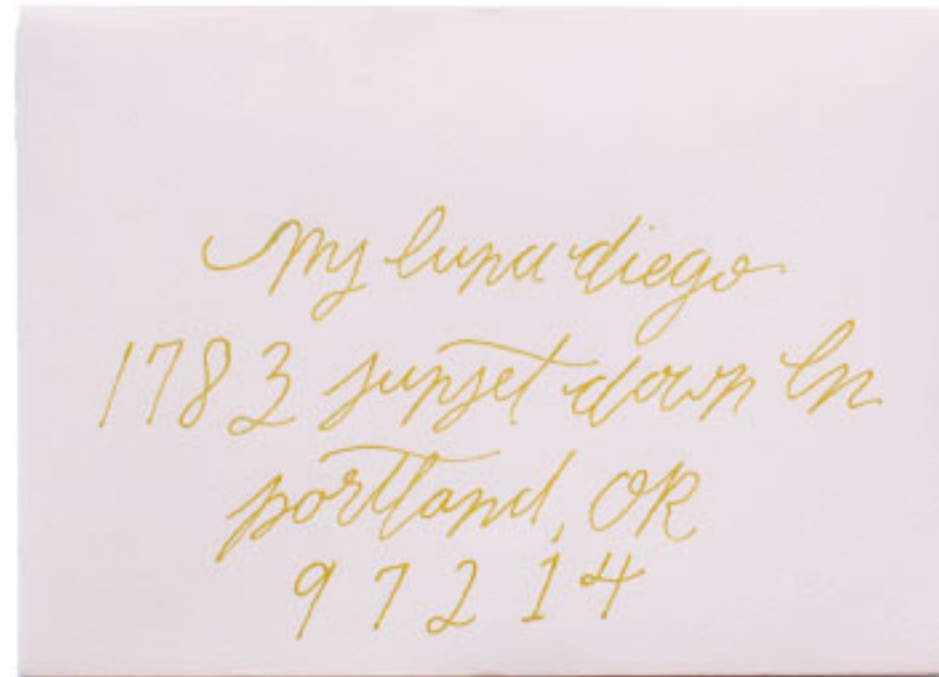 Ms luna diego
1783 sunset down ln
portland, OR
97214